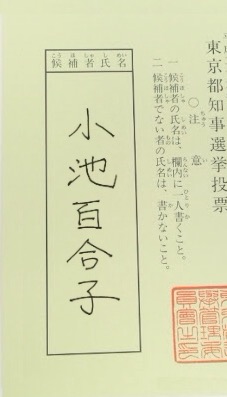 東京都知事選挙投票
○注意
一 候補者の氏名は、欄内に一人書くこと。
二 候補者でない者の氏名は、書かないこと。
候補者氏名
小池百合子